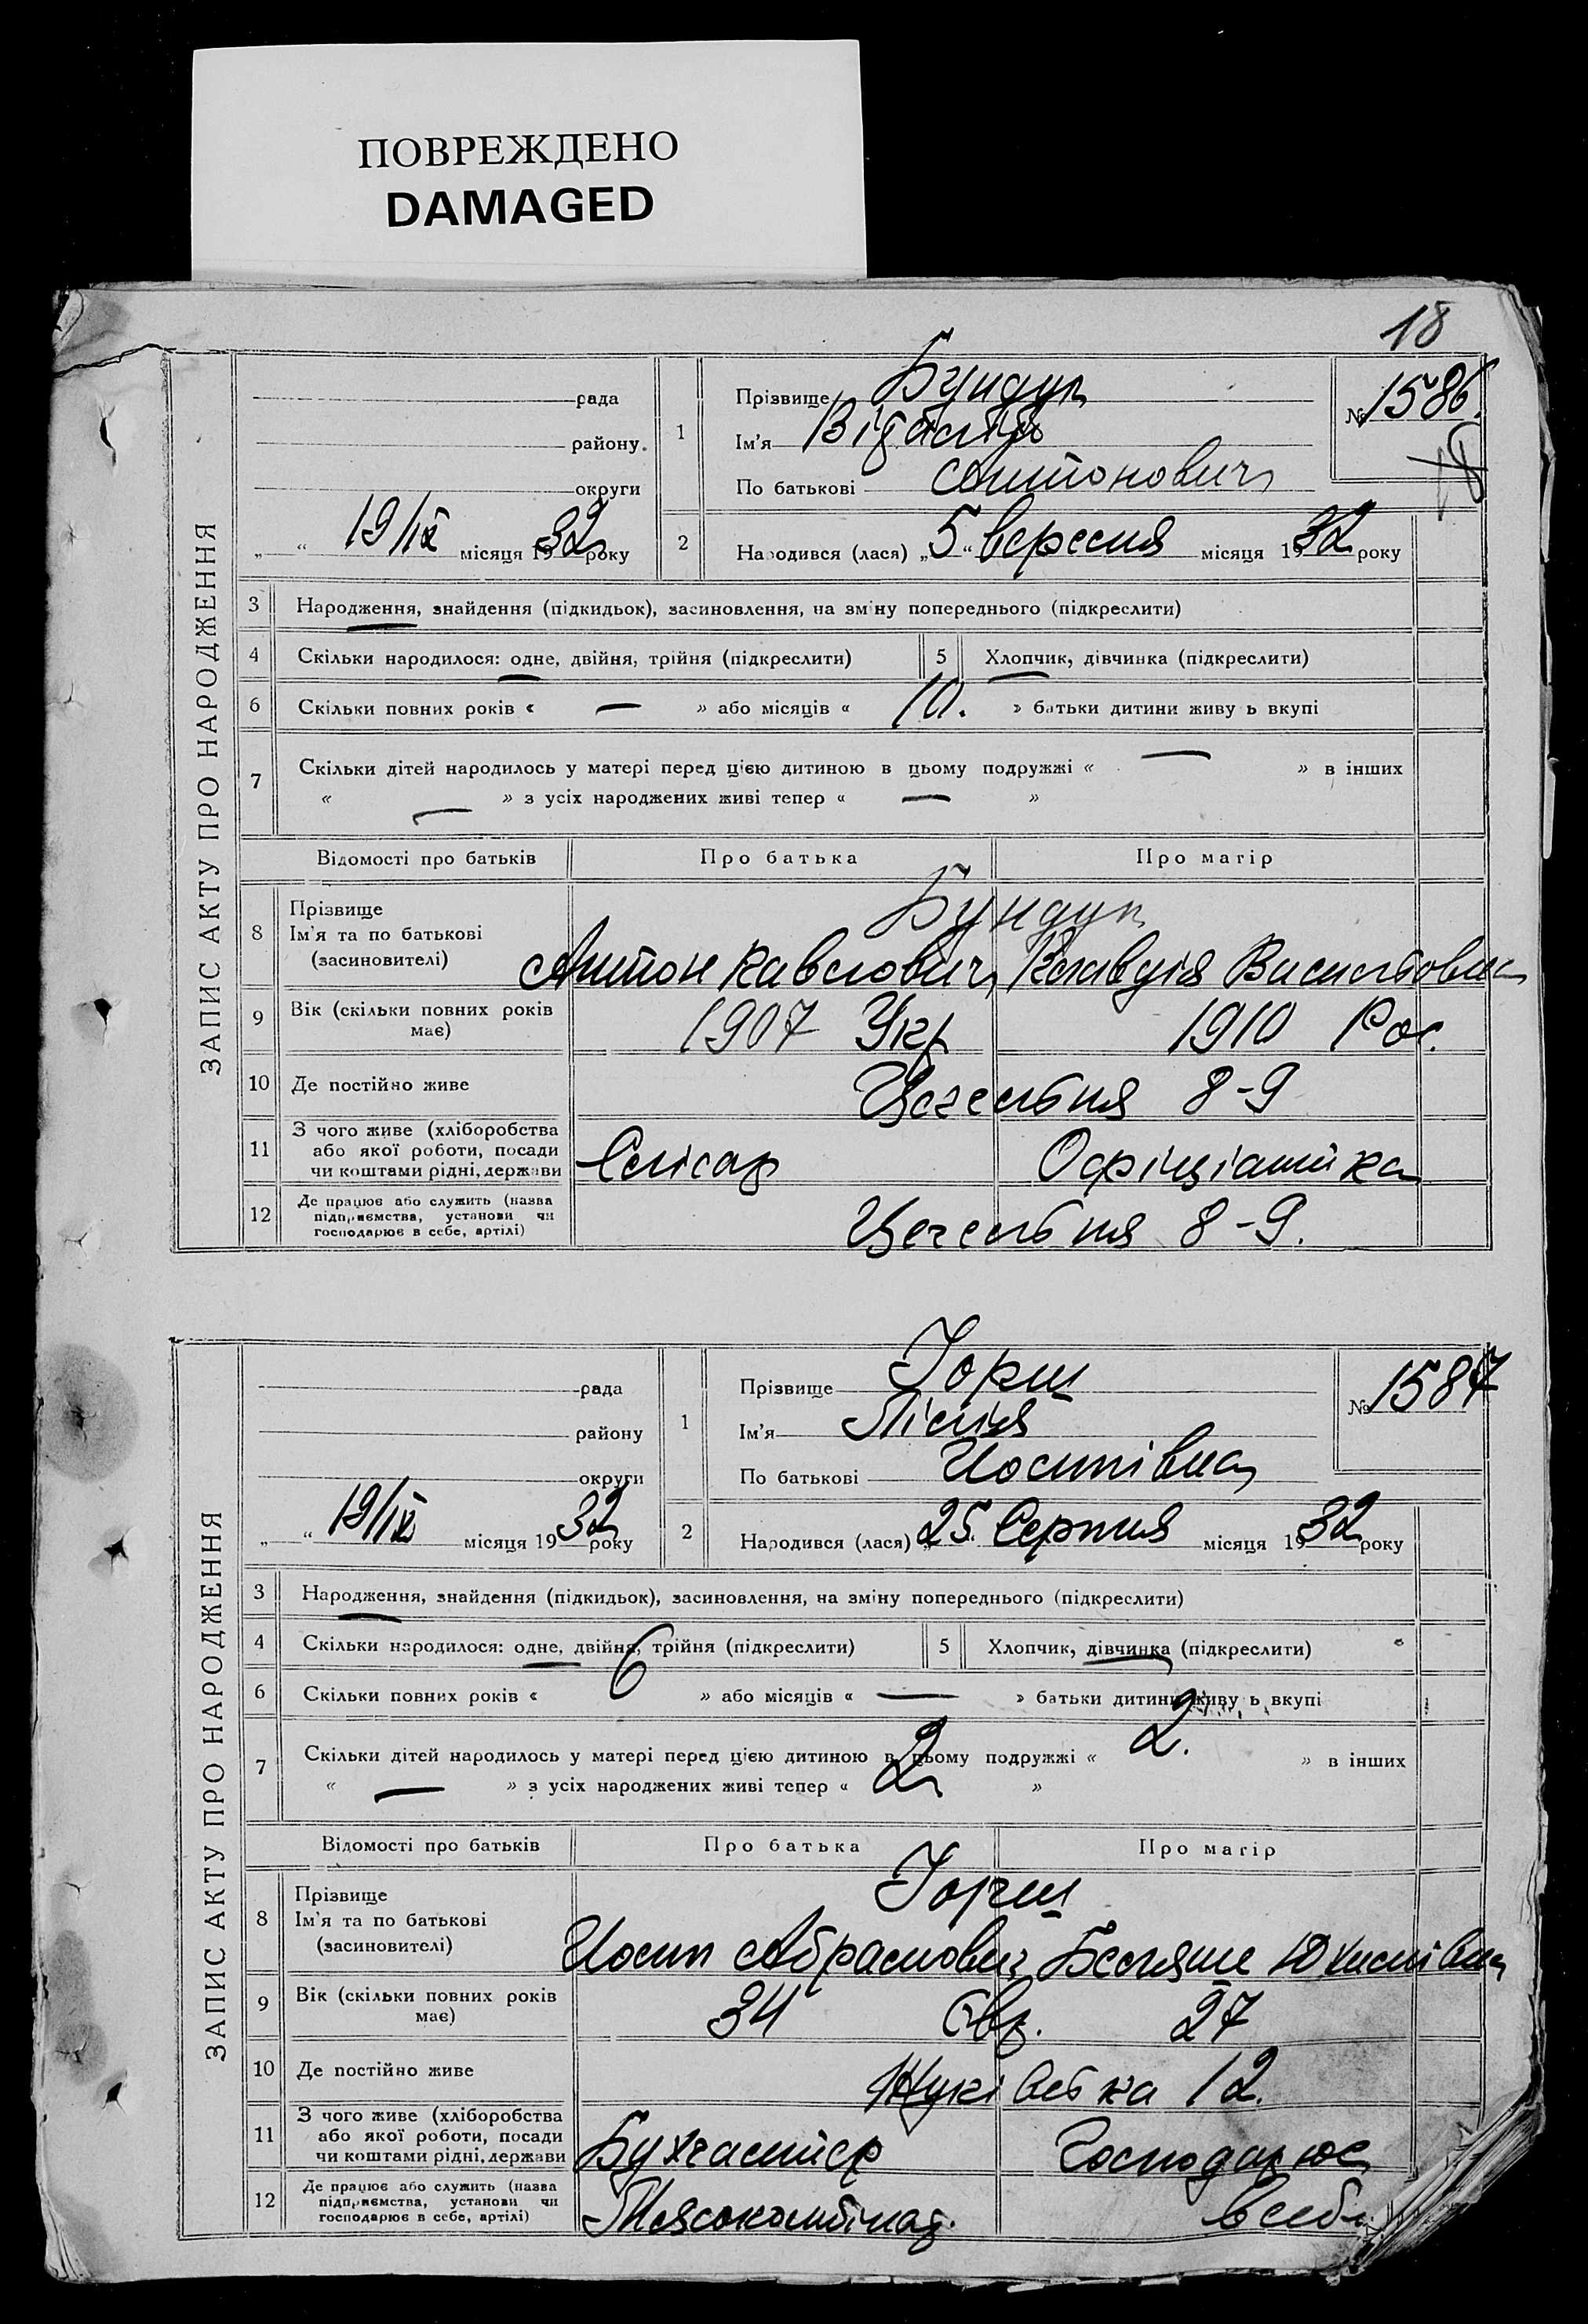 ПОВРЕЖДЕНО
DAMAGED
18
ЗАПИС АКТУ ПРО НАРОДЖЕННЯ
рада
району
округи
„ “ 19/IX місяця 1932 року
1
Прізвище Бундук
Ім'я
По батькові Антонович
№ 1586.
18
2
Народився (лася) „5“ вересня місяця 1932 року
3 Народження, знайдення (підкидьок), засиновлення, на зміну попереднього (підкреслити)
4 Скільки народилося: одне, двійня, трійня (підкреслити) 5 Хлопчик, дівчинка (підкреслити)
6 Скільки повних років « — » або місяців « 10. » батьки дитини живуть вкупі
7 Скільки дітей народилось у матері перед цією дитиною в цьому подружжі « — » в інших
« — » з усіх народжених живі тепер « — »
Відомості про батьків Про батька Про матір
8 Прізвище
Ім'я та по батькові
(засиновителі)
Бундук
Антон Павлович Клавдія Васильовна
9 Вік (скільки повних років має)
1907 Укр 1910 Рос.
10 Де постійно живе
Цегельня 8-9
11 З чого живе (хліборобства
або якої роботи, посади
чи коштами рідні, держави
Слісар Офіціантка
12 Де працює або служить (назва
підприємства, установи чи
господарює в себе, артілі)
Цегельня 8-9.
ЗАПИС АКТУ ПРО НАРОДЖЕННЯ
рада
району
округи
„ “ 19/IX місяця 1932 року
1
Прізвище
Ім'я Лілія
По батькові Йосипівна
№ 1587
2
Народився (лася) „25“ Серпня місяця 1932 року
3 Народження, знайдення (підкидьок), засиновлення, на зміну попереднього (підкреслити)
4 Скільки народилося: одне, двійня, трійня (підкреслити) 5 Хлопчик, дівчинка (підкреслити)
6 Скільки повних років « 6 » або місяців « — » батьки дитини живуть вкупі
7 Скільки дітей народилось у матері перед цією дитиною в цьому подружжі « 2. » в інших
« — » з усіх народжених живі тепер « 2 »
Відомості про батьків Про батька Про матір
8 Прізвище
Ім'я та по батькові
(засиновителі)
Йосип Абрамович
9 Вік (скільки повних років має)
34 Євр. 27
10 Де постійно живе
12.
11 З чого живе (хліборобства
або якої роботи, посади
чи коштами рідні, держави
Бухгалтер Господарює
12 Де працює або служить (назва
підприємства, установи чи
господарює в себе, артілі)
Мясокомбінат. в себе